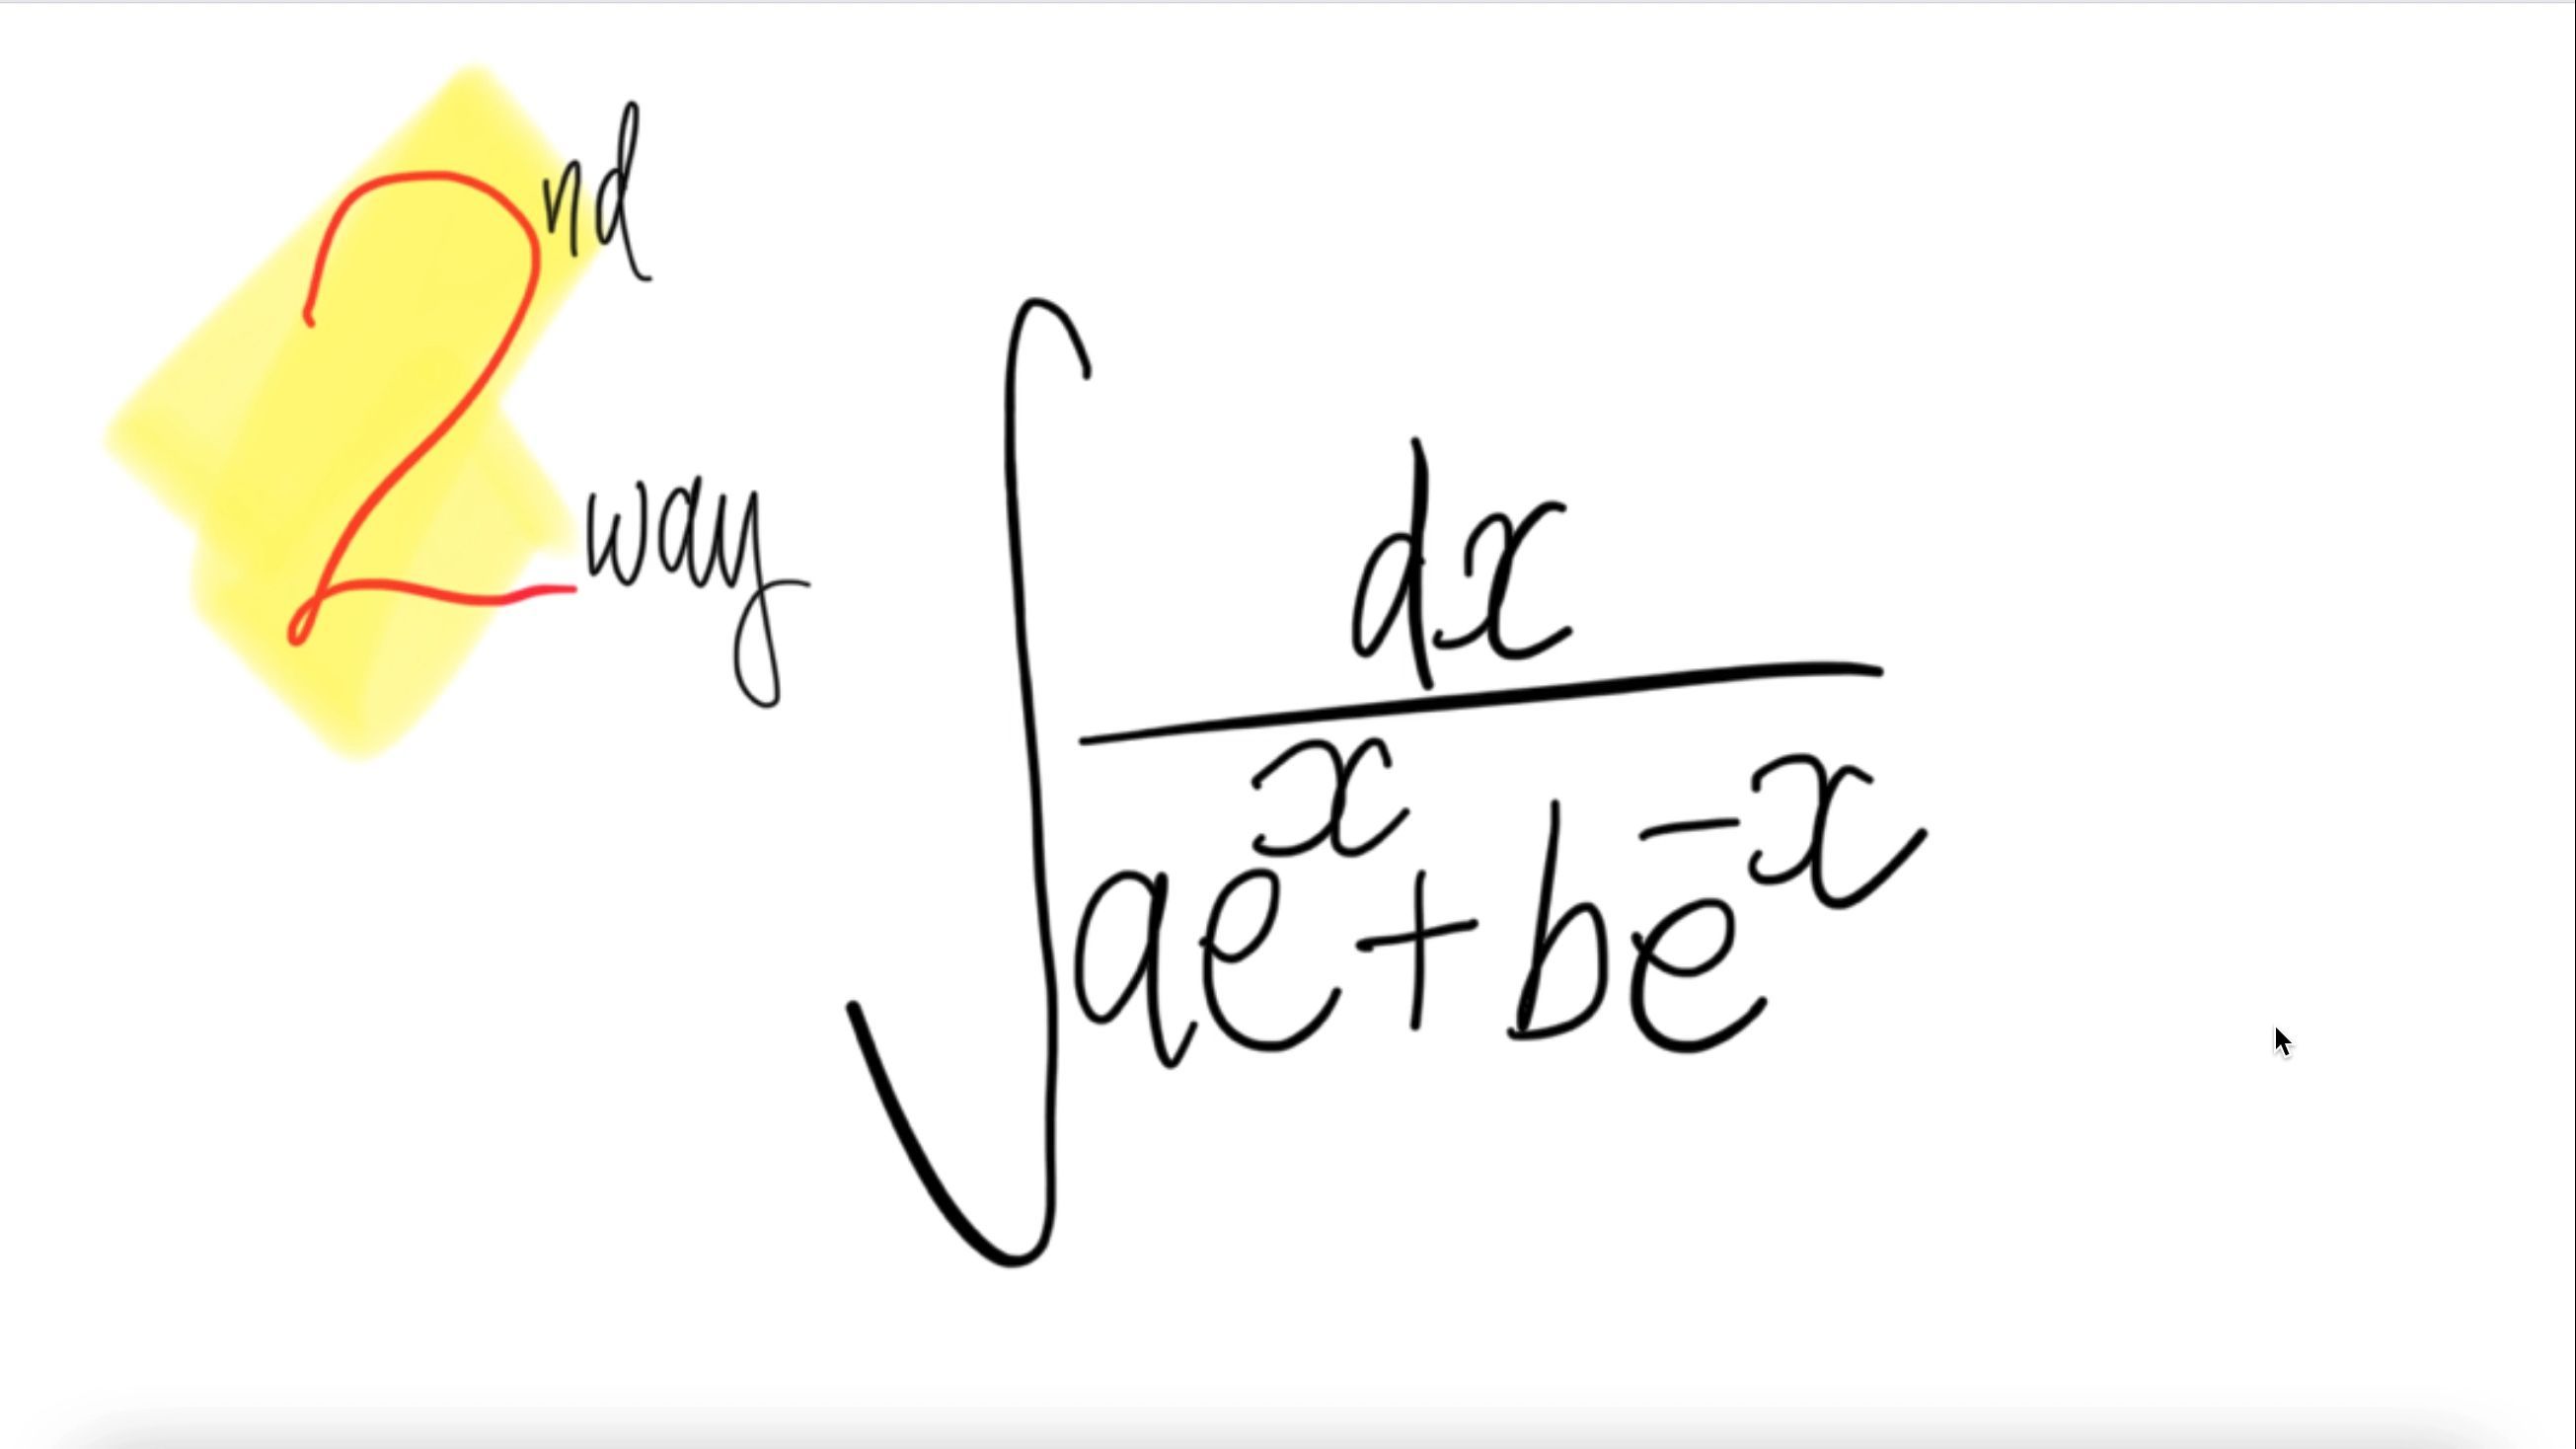 2nd
way
∫ dx / (ae^x + be^-x)